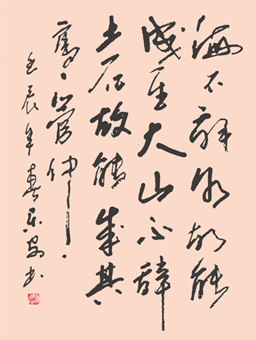 海不辭水故能
成其大山不辭
土石故能成其
高、管仲、
壬辰年春书